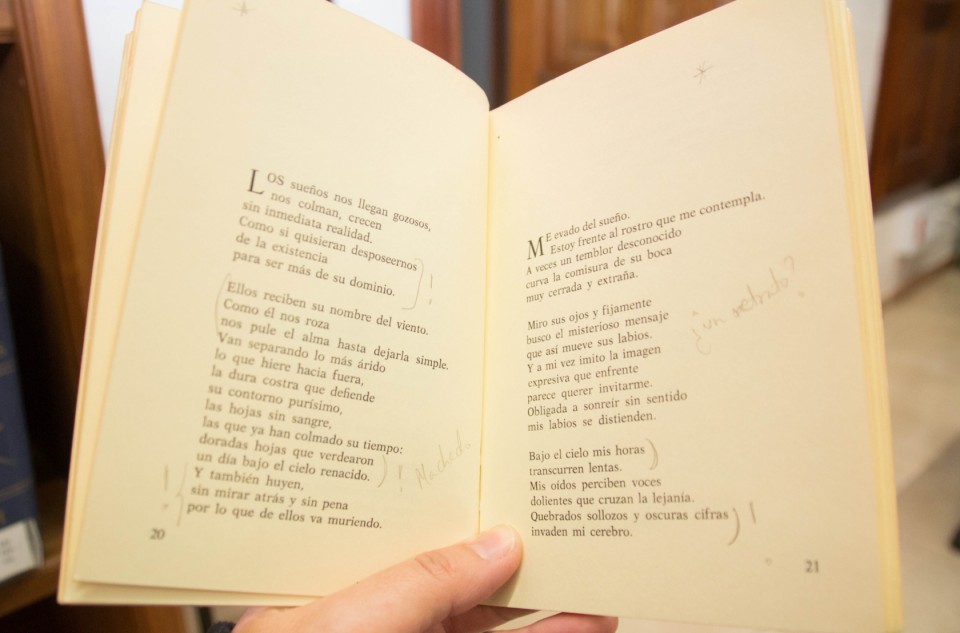 LOS sueños nos llegan gozosos,
nos colman, crecen
sin inmediata realidad.
Como si quisieran desposeernos
de la existencia
para ser más de su dominio.
!
Ellos reciben su nombre del viento.
Como él nos roza
nos pule el alma hasta dejarla simple.
Van separando lo más árido
lo que hiere hacia fuera,
la dura costra que defiende
su contorno purísimo,
las hojas sin sangre,
las que ya han colmado su tiempo:
doradas hojas que verdearon
un día bajo el cielo renacido.
! Machado.
! Y también huyen,
sin mirar atrás y sin pena
por lo que de ellos va muriendo.
20
ME evado del sueño.
Estoy frente al rostro que me contempla.
A veces un temblor desconocido
curva la comisura de su boca
muy cerrada y extraña.
Miro sus ojos y fijamente
busco el misterioso mensaje
que así mueve sus labios.
Y a mi vez imito la imagen
expresiva que enfrente
parece querer invitarme.
Obligada a sonreír sin sentido
mis labios se distienden.
¿un retrato?
Bajo el cielo mis horas
transcurren lentas.
Mis oídos perciben voces
dolientes que cruzan la lejanía.
Quebrados sollozos y oscuras cifras
invaden mi cerebro.
!
21